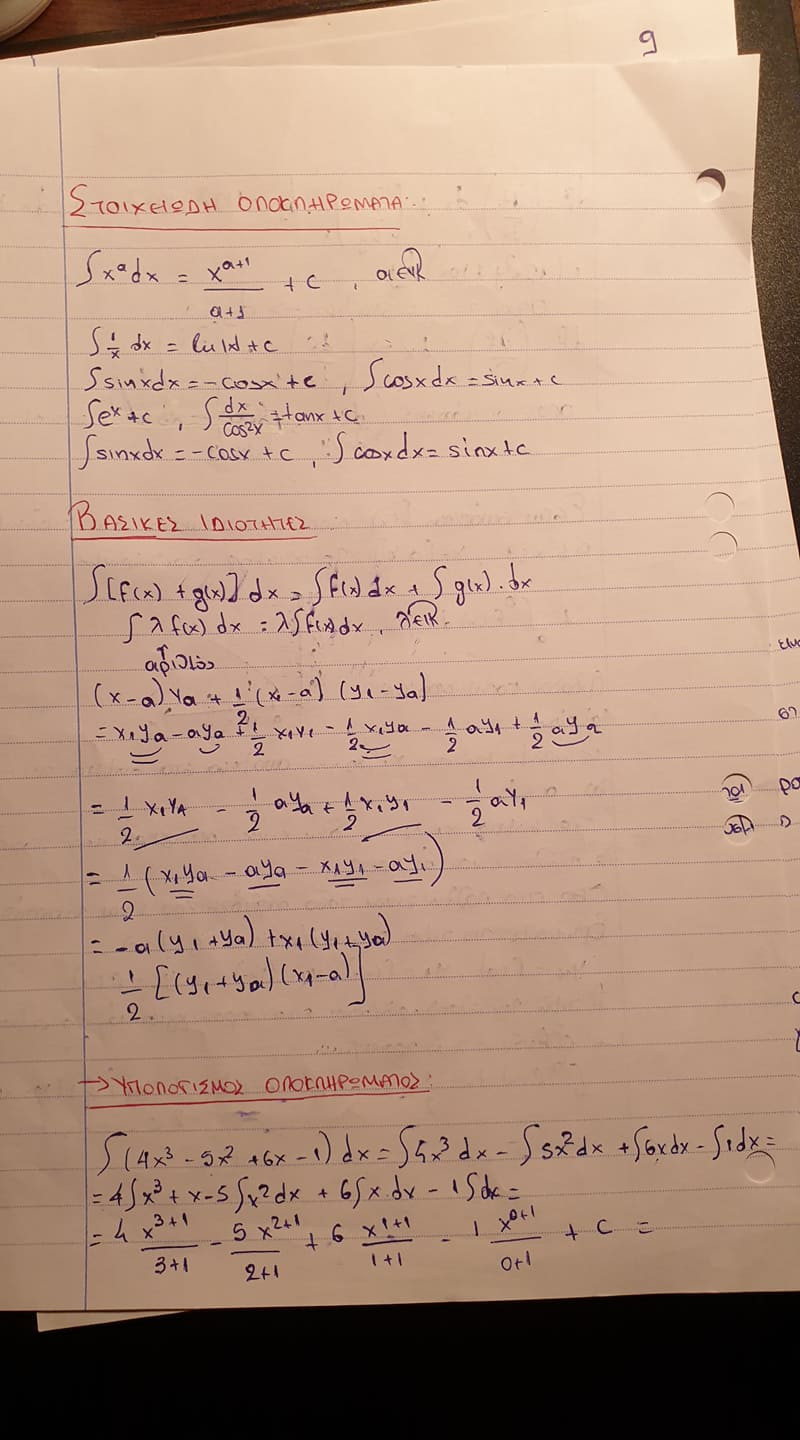 9
ΣΤΟΙΧΕΙΩΔΗ ΟΛΟΚΛΗΡΩΜΑΤΑ:
∫x^a dx = x^(a+1)/(a+1) + c , a∈ℝ
∫ 1/x dx = ln|x| + c
∫sinxdx = -cosx + c , ∫cosxdx = sinx + c
∫e^x + c , ∫ dx/cos²x = tanx + c
∫sinxdx = -cosx + c , ∫cosxdx = sinx + c
ΒΑΣΙΚΕΣ ΙΔΙΟΤΗΤΕΣ
∫[f(x) + g(x)] dx = ∫f(x) dx + ∫g(x)·dx
∫λ f(x) dx = λ∫f(x) dx , λ∈ℝ
↑
αριθμός
(x-a)ya + 1/2 (x₁-a) (y₁-ya)
= x₁ya - aya + 1/2 x₁y₁ - 1/2 x₁ya - 1/2 ay₁ + 1/2 aya
= 1/2 x₁ya - 1/2 aya + 1/2 x₁y₁ - 1/2 ay₁
= 1/2 (x₁ya - aya - x₁y₁ - ay₁)
= -a(y₁+ya) + x₁(y₁+ya)
1/2 [(y₁+ya)(x₁-a)]
→ΥΠΟΛΟΓΙΣΜΟΣ ΟΛΟΚΛΗΡΩΜΑΤΟΣ:
∫(4x³ - 5x² + 6x - 1) dx = ∫4x³ dx - ∫5x² dx + ∫6xdx - ∫1dx =
= 4∫x³ + x - 5∫x² dx + 6∫x dx - 1∫dx =
= 4 x^(3+1)/(3+1) - 5 x^(2+1)/(2+1) + 6 x^(1+1)/(1+1) - 1 x^(0+1)/(0+1) + c =